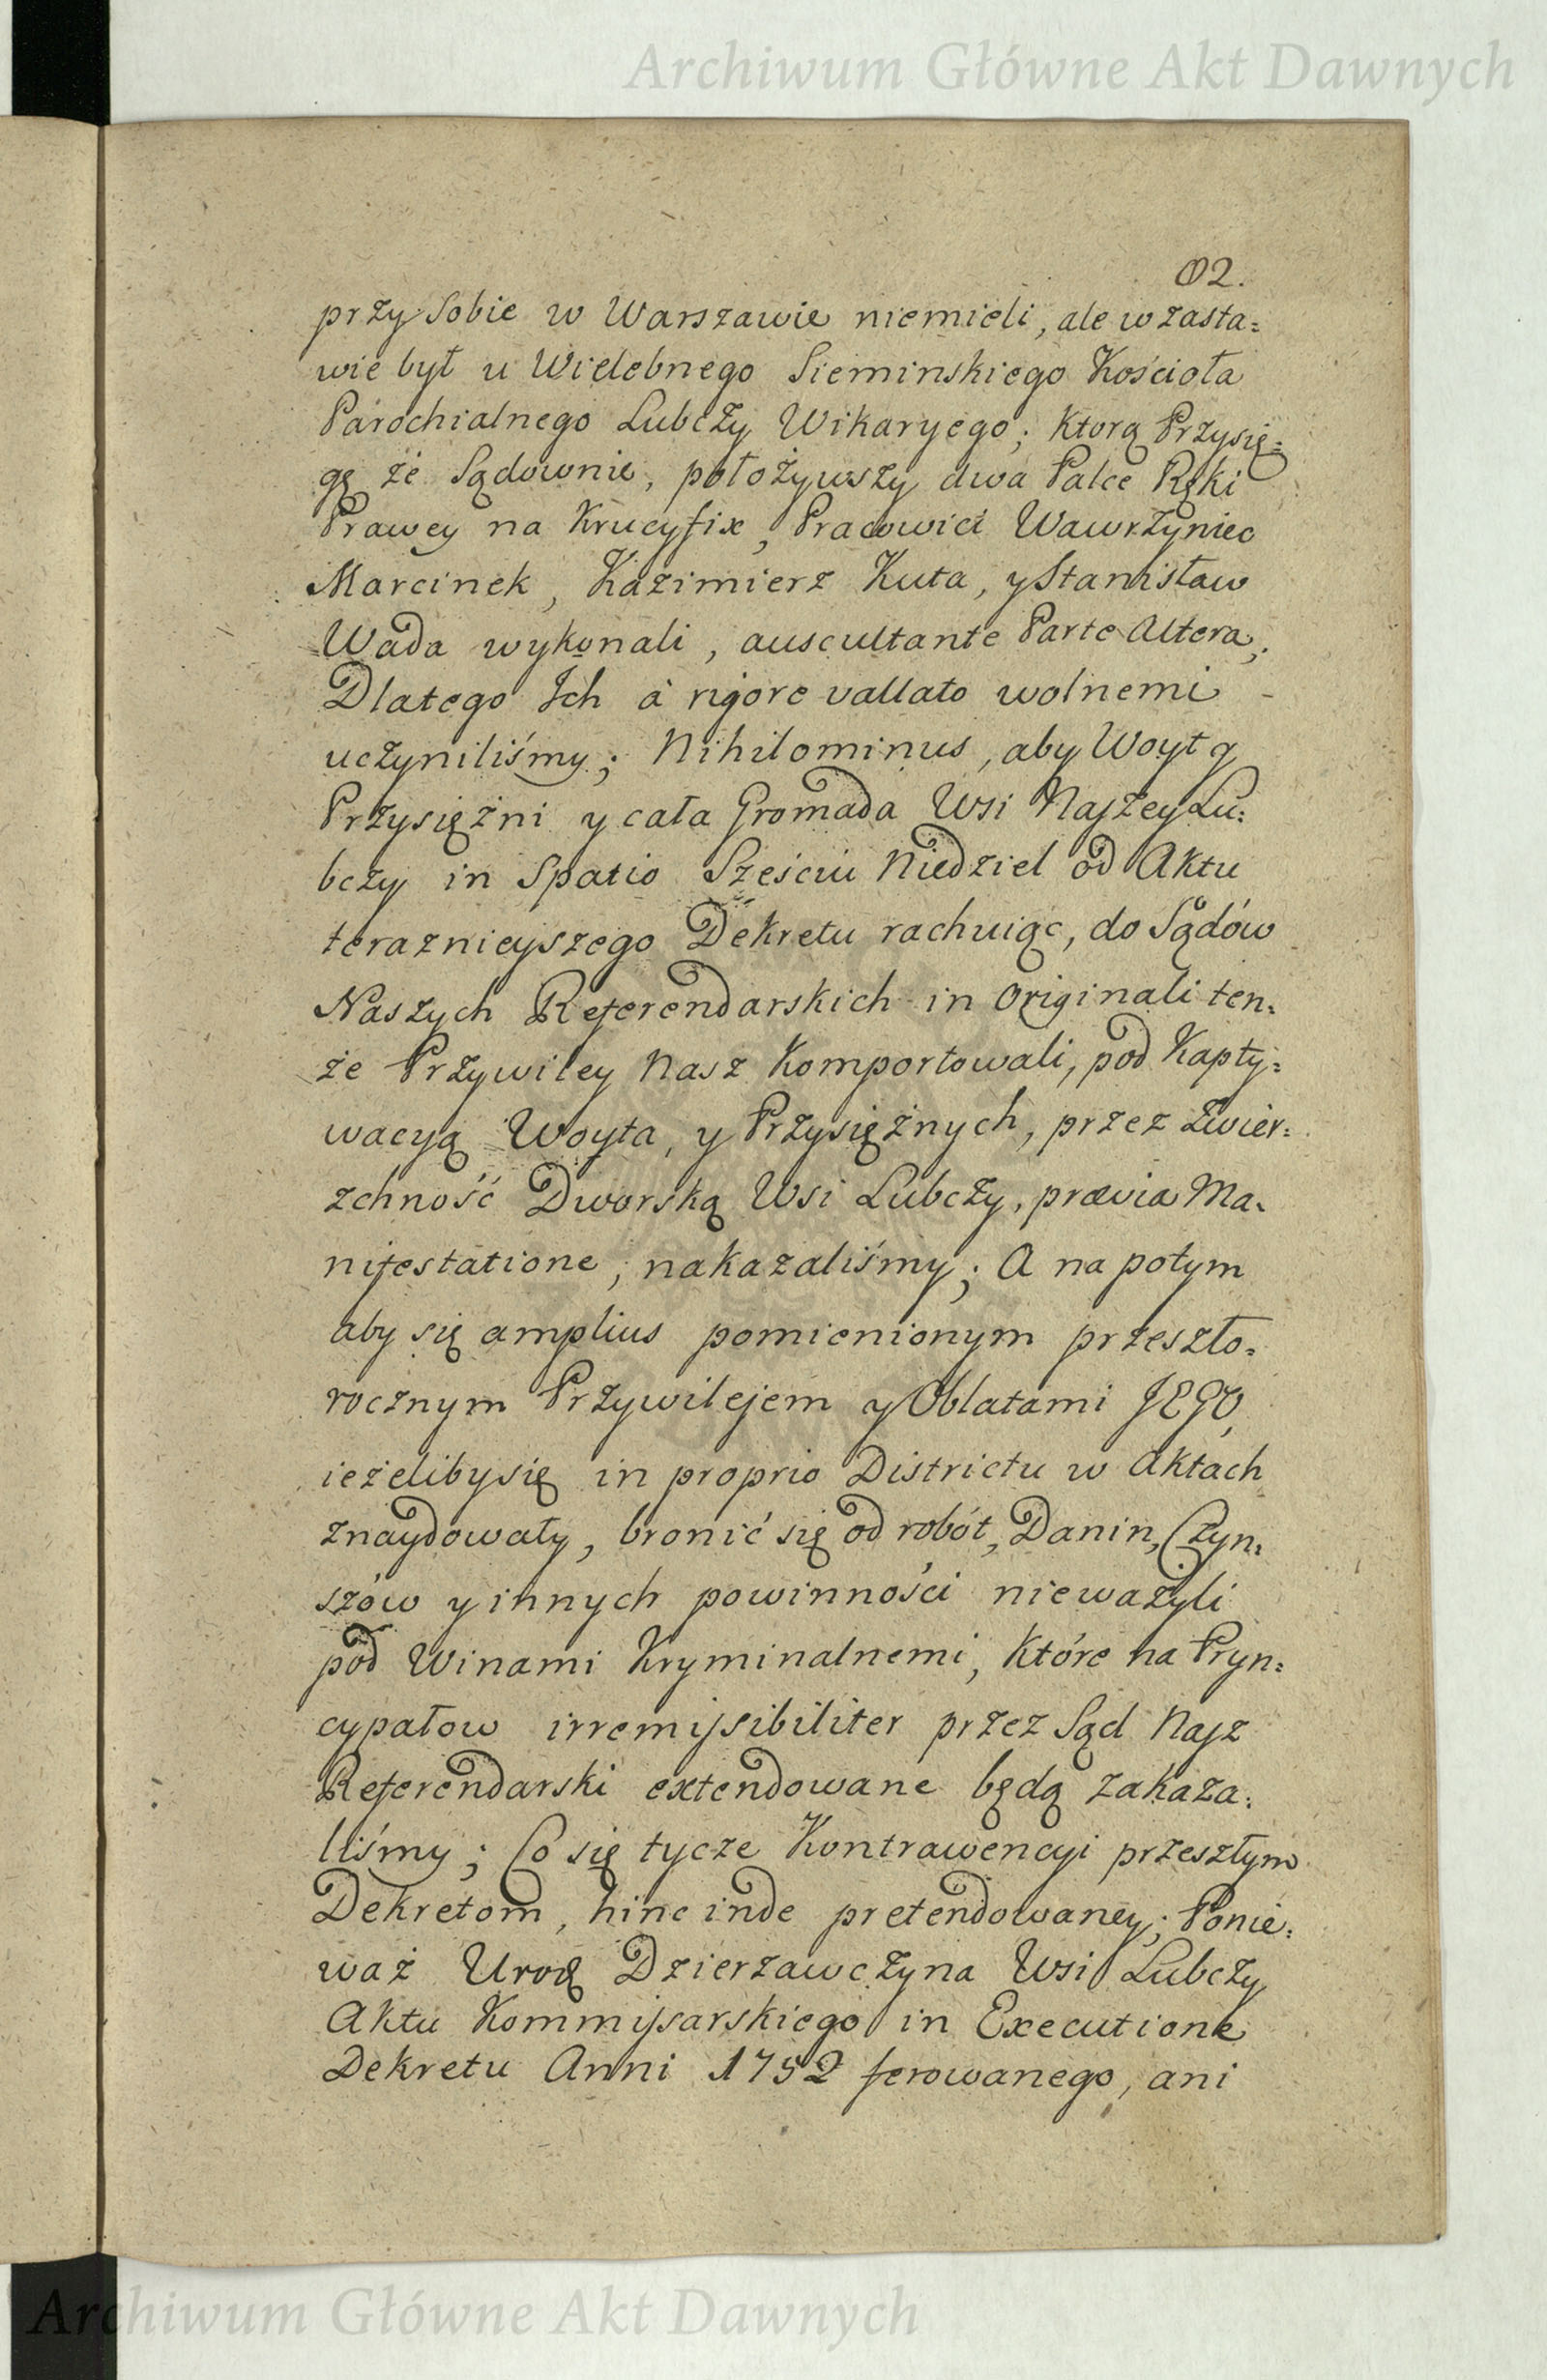 Archiwum Główne Akt Dawnych
02.
przy Sobie w Warszawie niemieli, ale w zasta=
wie był u Wielebnego Sieminskiego Kościoła
Parochialnego Lubczy Wikaryego; ktorą Przysię=
gę że Sądownie, położywszy dwa Palce Ręki
Prawey na Krucyfix, Pracowici Wawrzyniec
Marcinek, Kazimierz Kuta, y Stanisław
Wada wykonali, auscultante Parte Altera;
Dlatego Ich à rigore vallato wolnemi
uczyniliśmy; Nihilominus, aby Woyt y
Przysiężni y cała Gromada Wsi Naszey Lu=
bczy in Spatio Sześciu Niedziel od Aktu
teraznieyszego Dekretu rachuiąc, do Sądów
Naszych Referendarskich in Originali ten=
że Przywiley Nasz Komportowali, pod Kapty=
wacyą Woyta, y Przysiężnych, przez Zwier=
zchność Dworską Wsi Lubczy, prævia Ma=
nifestatione, nakazaliśmy; A na potym
aby się amplius pomienionym przeszło=
rocznym Przywilejem y Oblatami JEGO,
ieżeliby się in proprio Districtu w Aktach
znaydowały, bronić się od robót, Danin, Czyn=
szów y innych powinności nieważyli
pod Winami Kryminalnemi, Które na Pryn=
cypałow irremissibiliter przez Sąd Nasz
Referendarski extendowane będą zakaza=
liśmy; Co się tycze Kontrawencyi przeszłym
Dekretom, hinc inde pretendowaney; Ponie=
waż Urod Dzierzawczyna Wsi Lubczy
Aktu Kommissarskiego in Executione
Dekretu Anni 1752 ferowanego, ani
Archiwum Główne Akt Dawnych